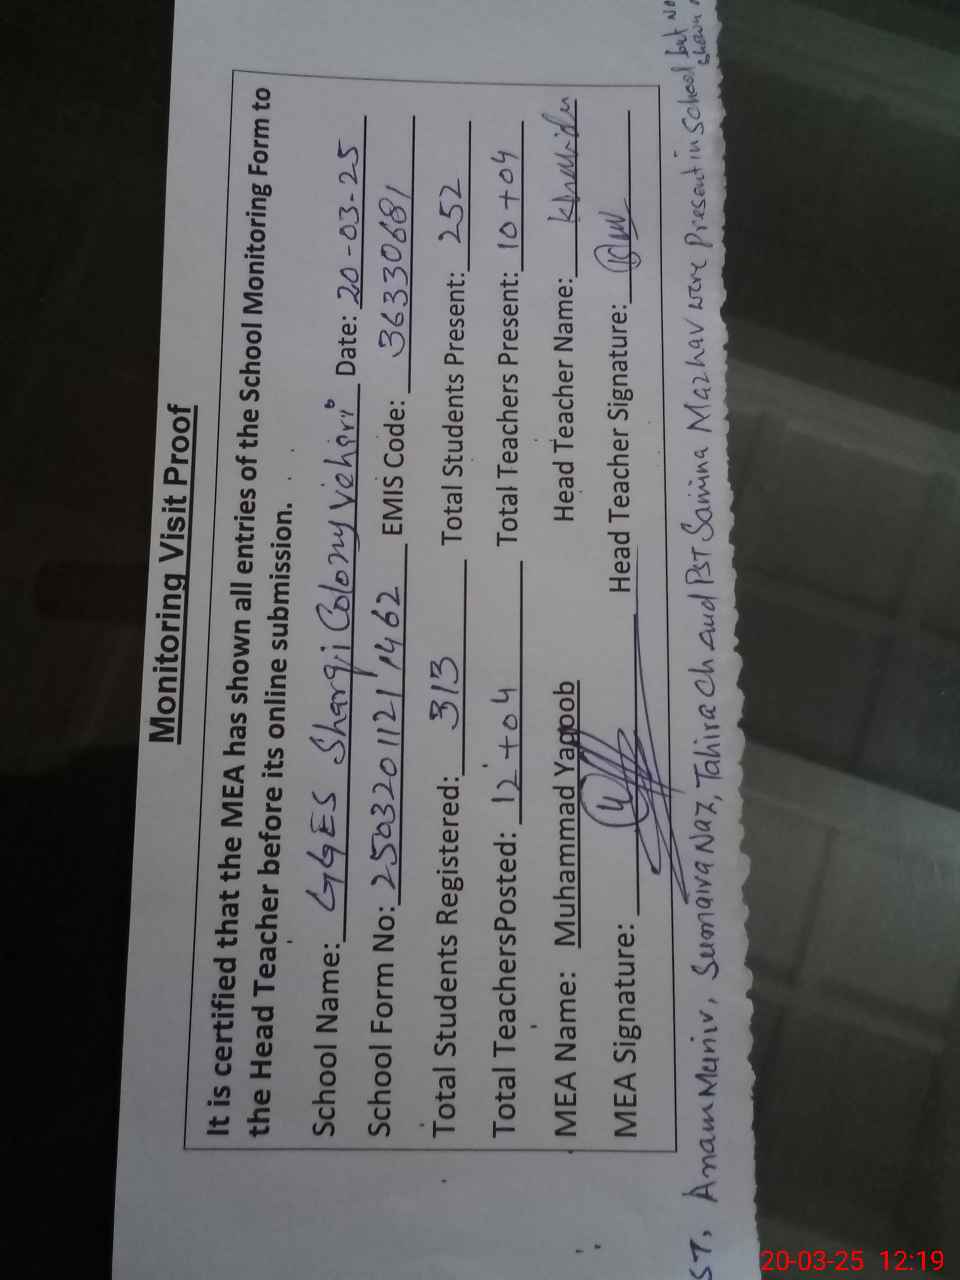 Monitoring Visit Proof
It is certified that the MEA has shown all entries of the School Monitoring Form to
the Head Teacher before its online submission.
School Name: GGES Sharqi Colony Vehari Date: 20-03-25
School Form No: 250320112111462 EMIS Code: 36330681
Total Students Registered: 313 Total Students Present: 252
Total TeachersPosted: 12+04 Total Teachers Present: 10+04
MEA Name: Muhammad Yaqoob Head Teacher Name:
MEA Signature: Head Teacher Signature:
ST, Anam Munir, Sumaira Naz, Tahira Ch and PST Samina Mazhar were Present in School but No
shown
20-03-25 12:19